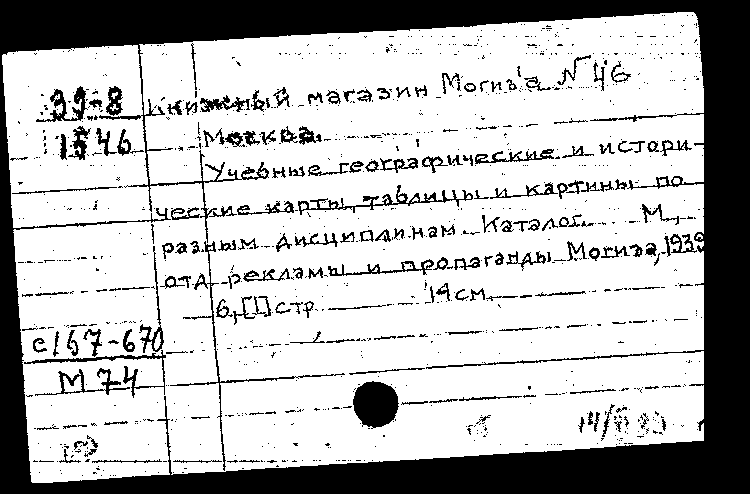 39-8
1546
Книжный магазин Могиз'а № 46
Москва.
Учебные географические и истори-
ческие карты, таблицы и картины по
разным дисциплинам. Каталог. М.,
отд. рекламы и пропаганды Могиза, 1939
6, [1] стр. 14 см.
с167-670
М 74